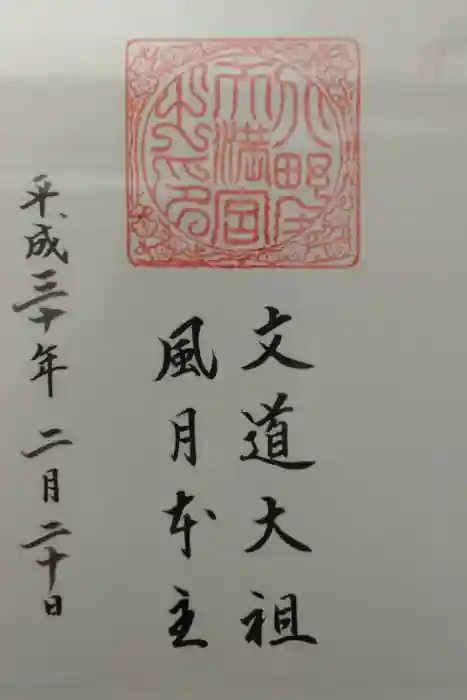 天満宮
文道大祖
風月本主
平成三十年 二月二十日